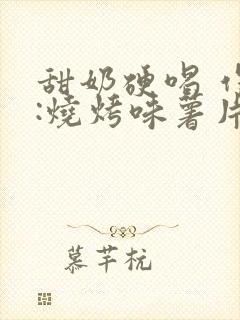 甜奶硬唱
:燒烤味薯片
慕芊杭